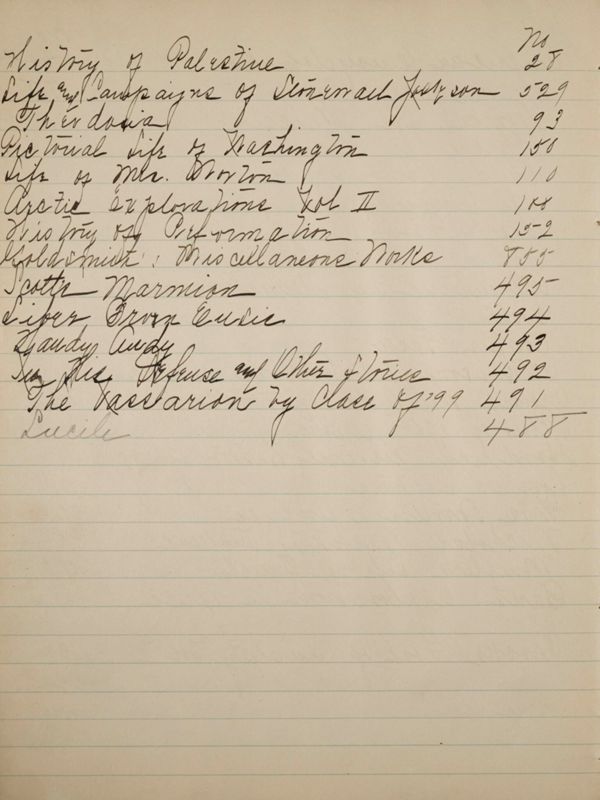 No
History of Palestine 28
Life and Campaigns of Stonewall Jackson 529
Theodosia 93
Pictorial Life of Washington 150
Life of Mrs. 110
Arctic Explorations Vol II 108
History of Reformation 152
Goldsmith's Miscellaneous Works 855
Scotts Marmion 495
494
Handy Andy 493
In His Defense and Other Stories 492
The Vassarion by Class of '99 491
Lucile 488